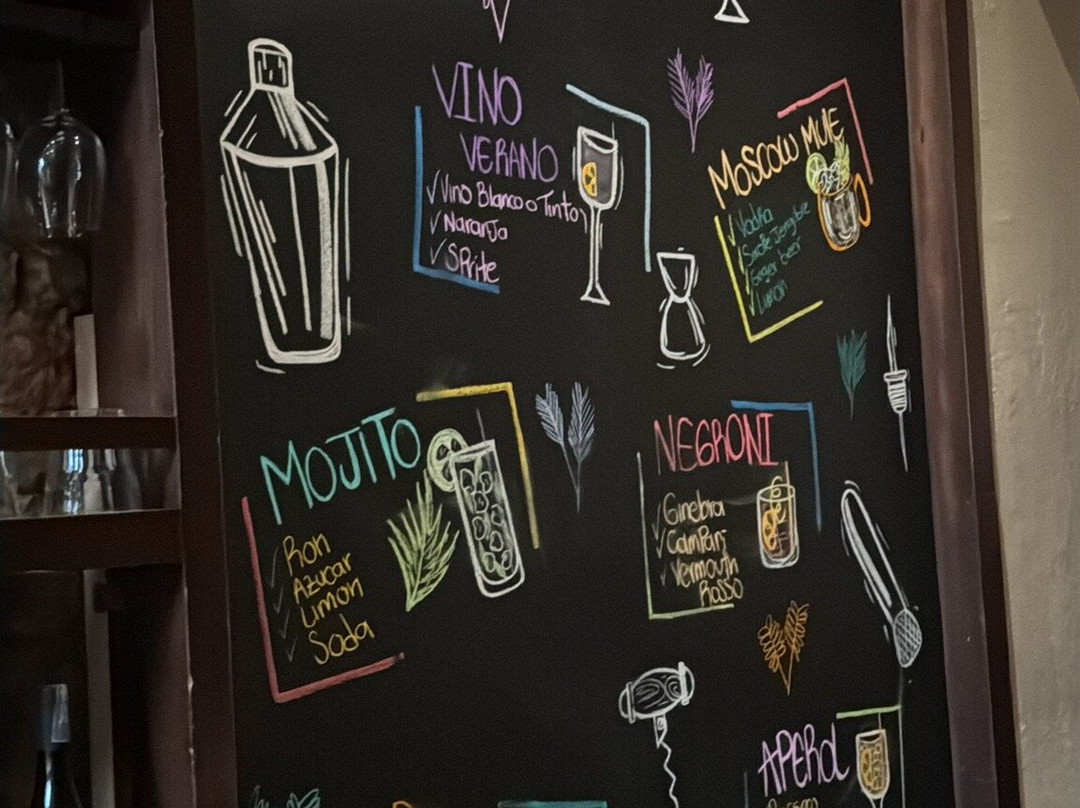 VINO
VERANO
✓ Vino Blanco o Tinto
✓ Naranja
✓ SPRite
MOSCOW MULE
✓ Vodka
✓ Sirope Jengibre
✓ Ginger beer
✓ Limon
MOJITO
✓ Ron
✓ Azucar
✓ Limon
✓ Soda
NEGRONI
✓ Ginebra
✓ Campari
✓ Vermouth
Rosso
APEROL